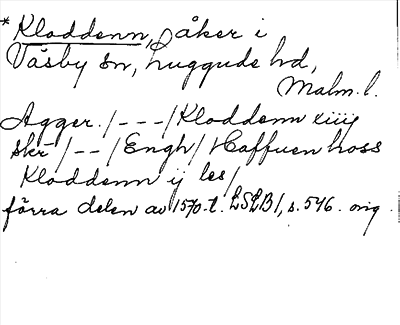 *Kloddenn, åker i
Väsby sn, Luggude hd,
Malm. l.
Agger. /---/ Kloddenn xiiij
skr /--/ Engh / Haffuen hoss
Kloddenn ij les /
förra delen av 1570-t. LSLB 1, s. 546. orig.